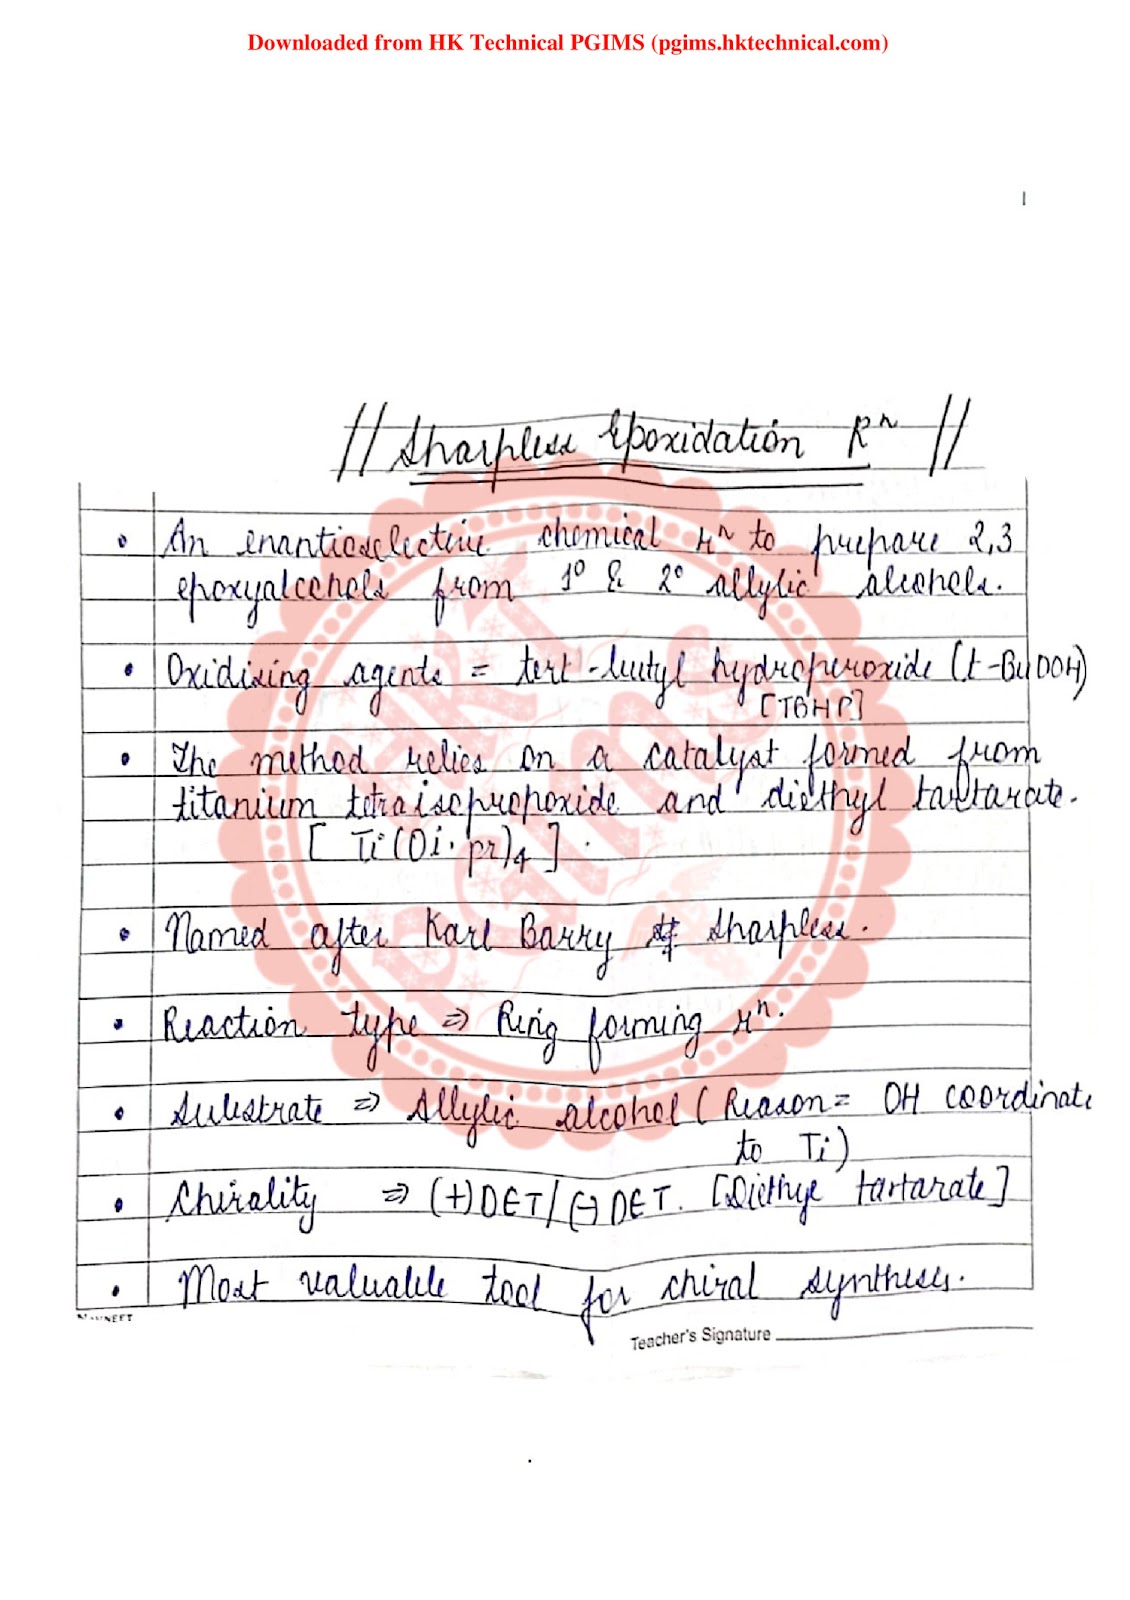 Downloaded from HK Technical PGIMS (pgims.hktechnical.com)
1
// Sharpless Epoxidation Rⁿ //
• An enantioselective chemical rⁿ to prepare 2,3
epoxyalcohols from 1° & 2° allylic alcohols.
• Oxidising agents = tert-butyl hydroperoxide (t-BuOOH)
[TBHP]
• The method relies on a catalyst formed from
titanium tetraisopropoxide and diethyl tartarate.
[ Ti(Oi.pr)4 ].
• Named after Karl Barry Sharpless.
• Reaction type ⇒ Ring forming rⁿ.
• Substrate ⇒ Allylic alcohol ( Reason = OH coordinate
to Ti)
• Chirality ⇒ (+)DET/(-)DET. [Diethye tartarate]
• Most valuable tool for chiral synthesis.
Teacher's Signature